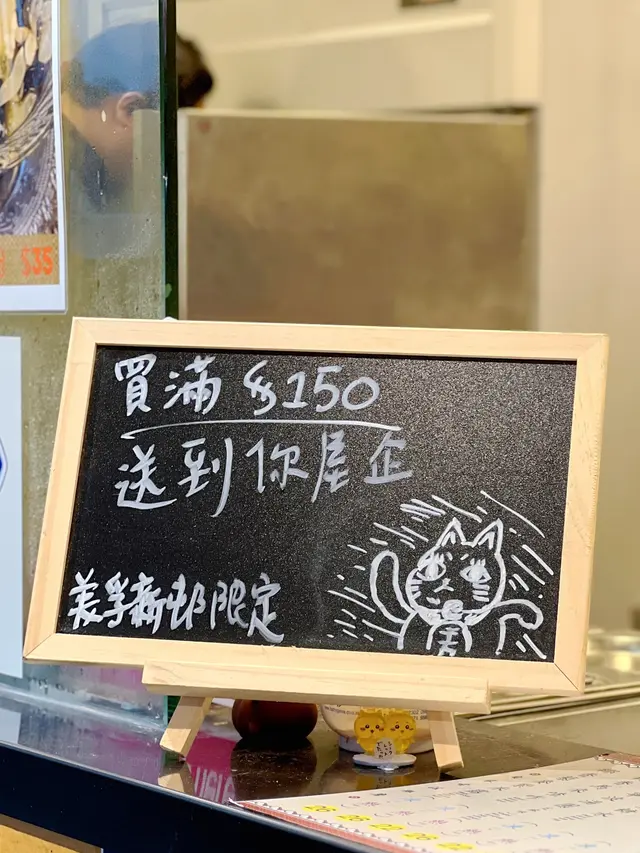 買滿 $150
送到你屋企
美孚新邨限定
$35